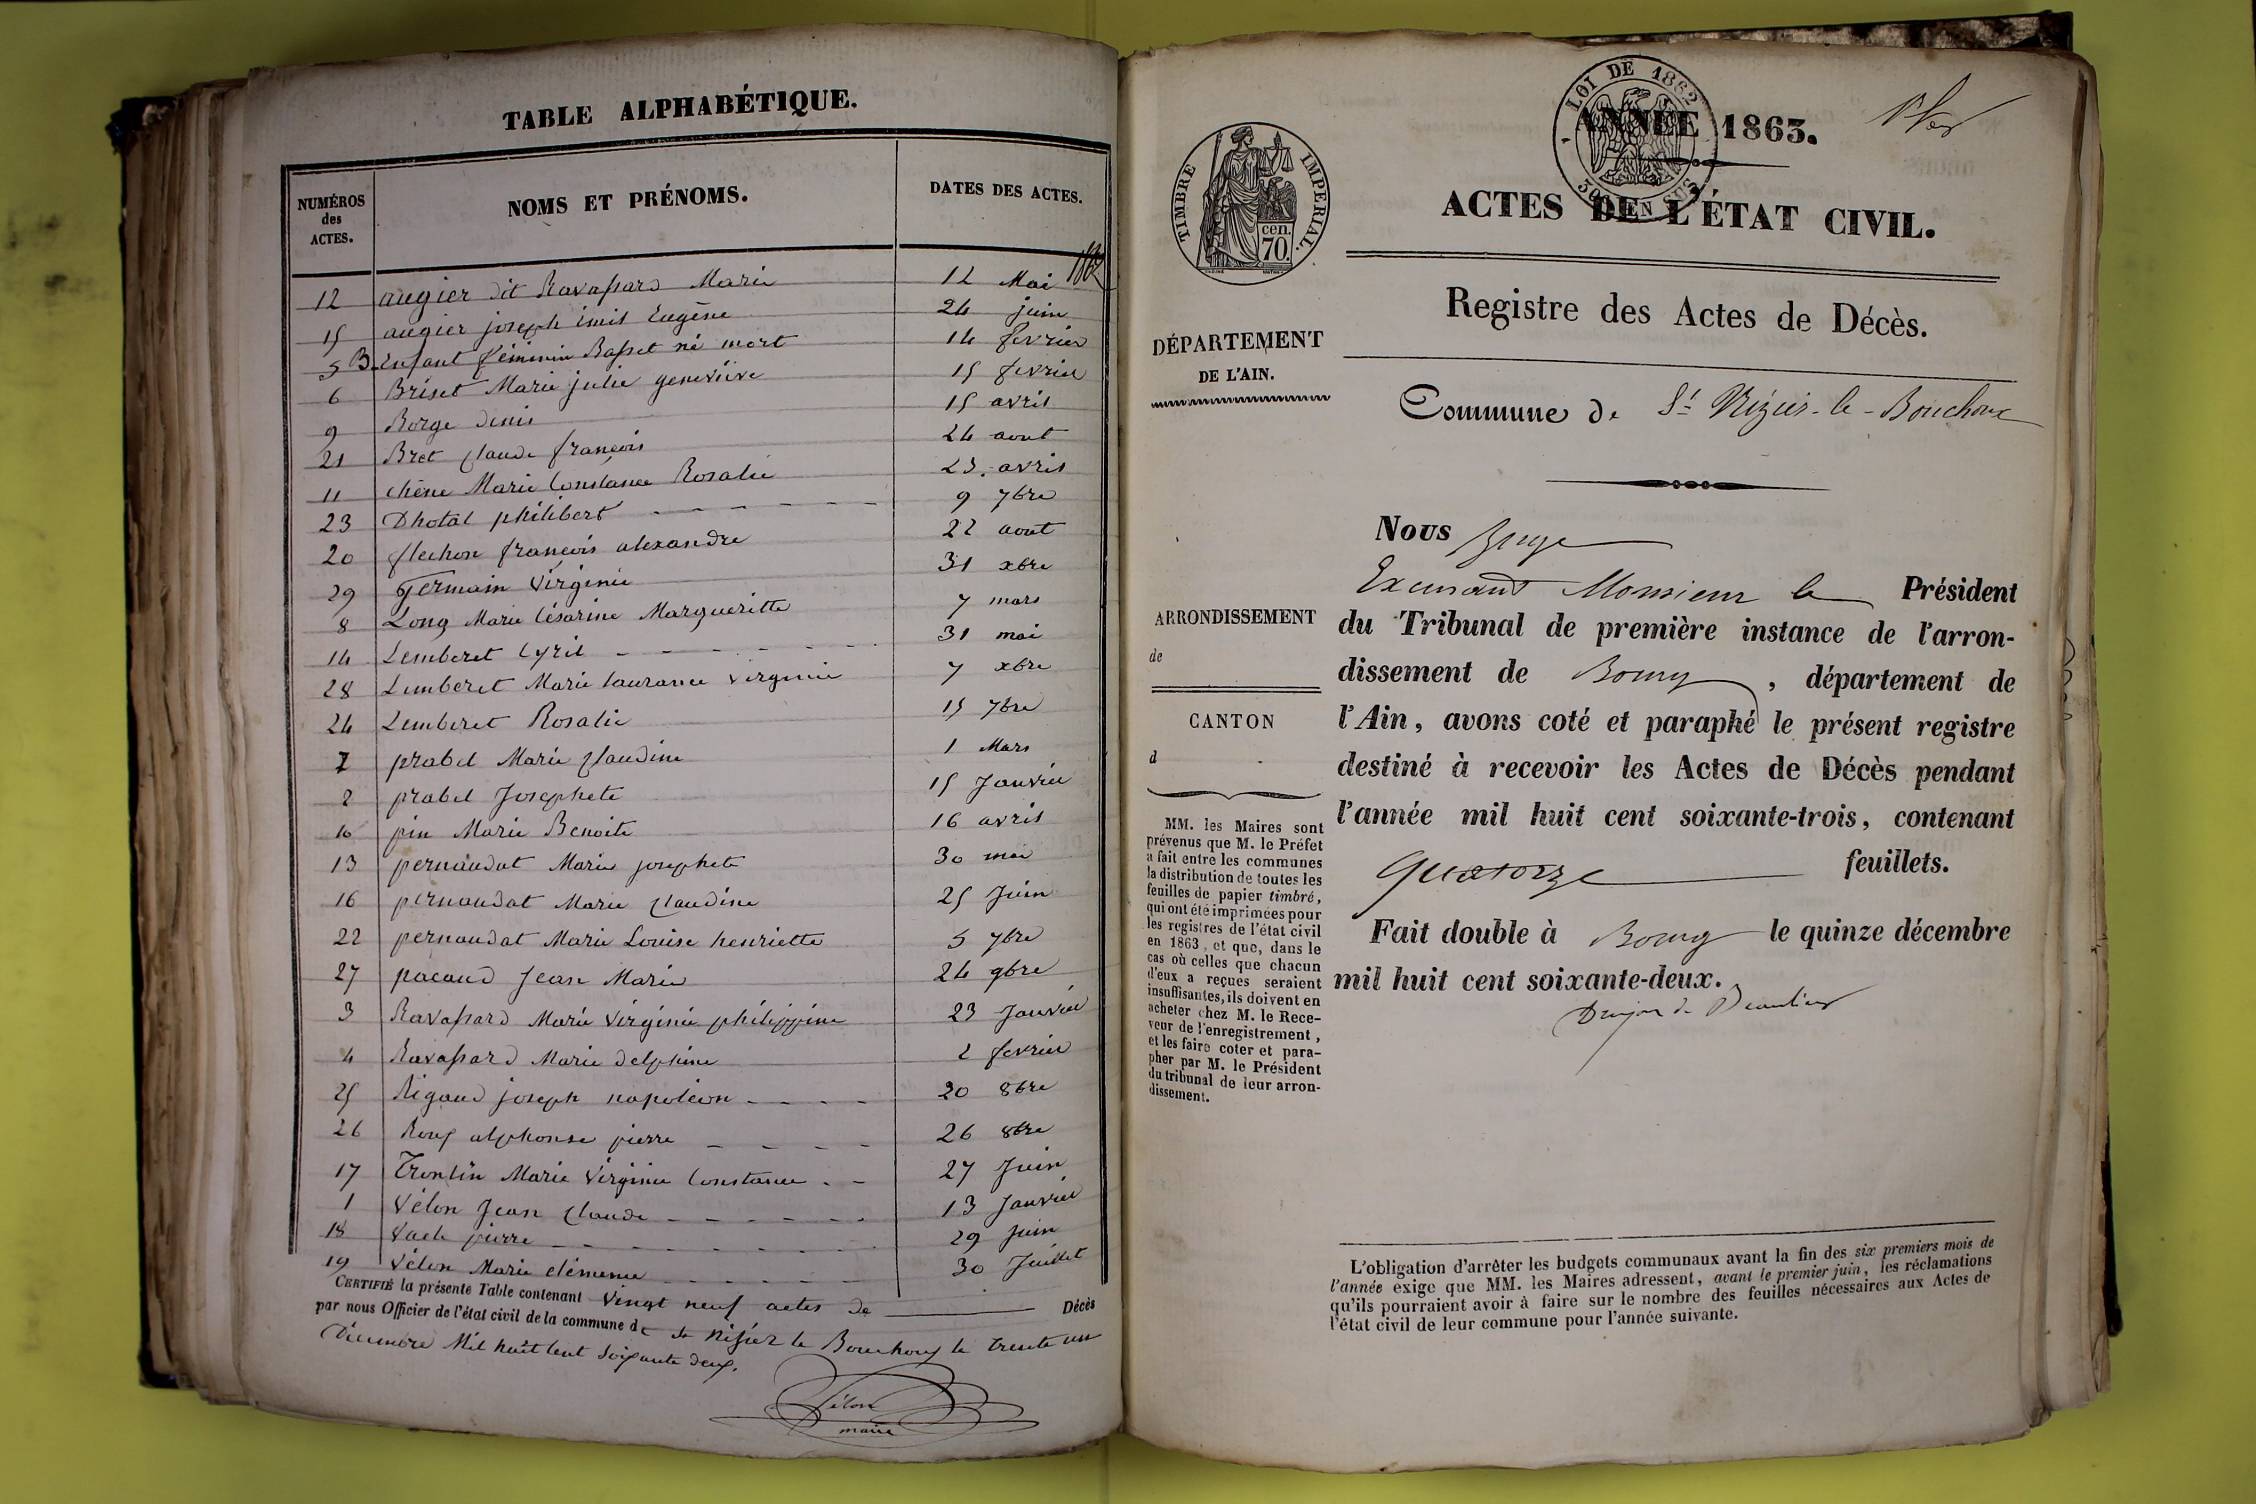 TABLE ALPHABÉTIQUE.
NUMÉROS des ACTES. NOMS ET PRÉNOMS. DATES DES ACTES.
1862
12 augier dit Ravassard Marie 12 Mai
15 augier joseph émil Eugène 24 juin
5 B. Enfant féminin Basset né mort 14 fevrier
6 Briset Marie julie geneviève 15 fevrier
9 Borge denis 15 avril
21 Bret claude françois 24 aout
11 chêne Marie Constance Rosalie 23 avril
23 Dhotal philibert 9 7bre
20 flechon françois alexandre 22 aout
29 Germain Virginie 31 xbre
8 Long Marie Césarine Margueritte 7 mars
14 Lemberet Cyril 31 mai
28 Lemberet Marie laurance virginie 7 xbre
24 Lemberet Rosalie 15 7bre
7 prabel Marie Claudine 1 Mars
2 prabel Josephete 15 Janvier
10 pin Marie Benoite 16 avril
13 pernaudat Marie josephete 30 mai
16 pernaudat Marie Claudine 25 Juin
22 pernaudat Marie Louise henriette 5 7bre
27 pacaud Jean Marie 24 9bre
3 Ravassard Marie Virginie philippine 23 Janvier
4 Ravassard Marie delphine 2 fevrier
25 Rigaud joseph napoléon 20 8bre
26 Roux alphonse pierre 26 8bre
17 Trontin Marie Virginie Constance 27 Juin
1 Vélon Jean Claude 13 Janvier
18 pierre 29 Juin
19 Vélon Marie clémence 30 Juillet
CERTIFIÉ la présente Table contenant vingt neuf actes de Décès
par nous Officier de l'état civil de la commune de St Nizier le Bouchoux le trente un
Décembre Mil huit cent soixante deux.
Vélon
maire
LOI DE 1862
ANNÉE 1863.
TIMBRE IMPERIAL.
cen. 70.
ACTES DE L'ÉTAT CIVIL.
Registre des Actes de Décès.
DÉPARTEMENT
DE L'AIN.
Commune de St Nizier-le-Bouchoux
Nous
Monsieur le Président
ARRONDISSEMENT
de
du Tribunal de première instance de l'arron-
dissement de Bourg, département de
CANTON
d
l'Ain, avons coté et paraphé le présent registre
destiné à recevoir les Actes de Décès pendant
l'année mil huit cent soixante-trois, contenant
Quatorze feuillets.
Fait double à Bourg le quinze décembre
mil huit cent soixante-deux.
MM. les Maires sont
prévenus que M. le Préfet
a fait entre les communes
la distribution de toutes les
feuilles de papier timbré,
qui ont été imprimées pour
les registres de l'état civil
en 1863, et que, dans le
cas où celles que chacun
d'eux a reçues seraient
insuffisantes, ils doivent en
acheter chez M. le Rece-
veur de l'enregistrement,
et les faire coter et para-
pher par M. le Président
du tribunal de leur arron-
dissement.
L'obligation d'arrêter les budgets communaux avant la fin des six premiers mois de
l'année exige que MM. les Maires adressent, avant le premier juin, les réclamations
qu'ils pourraient avoir à faire sur le nombre des feuilles nécessaires aux Actes de
l'état civil de leur commune pour l'année suivante.